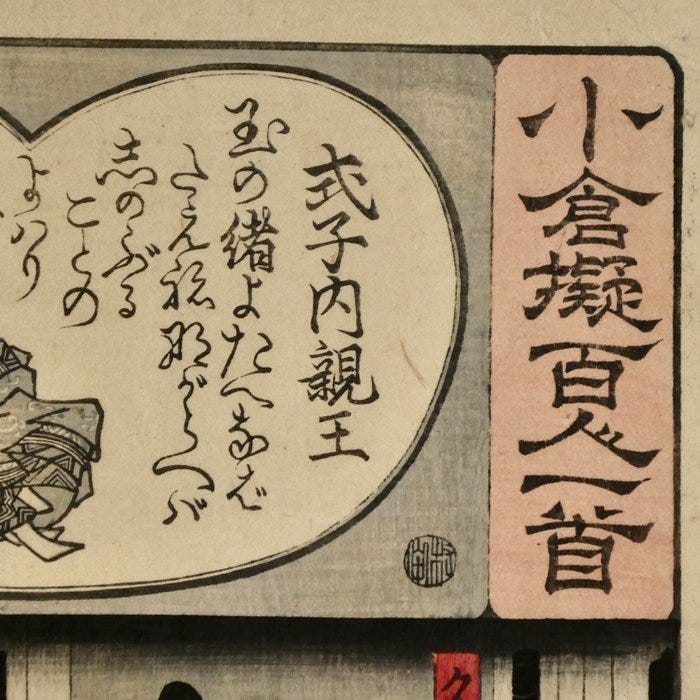 小倉擬百人一首
式子内親王
玉の緒よたへなば
たえねながらへバ
志のぶる
ことの
よハり
ク